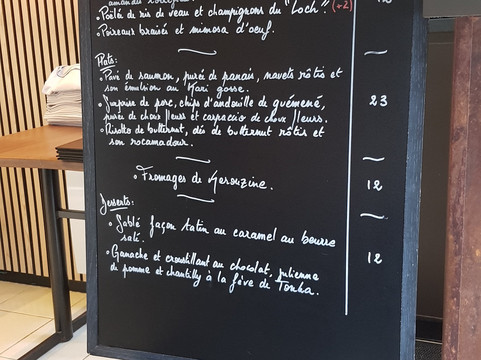 • Poêlée de ris de veau et champignons du "Loch" (+2)
• Poireaux braisés et mimosa d'oeuf.
Plats:
• Pavé de saumon, purée de panais, navets rôtis et
son émulsion au Kari gosse.
• Surprise de porc, chips d'andouille de guémené, 23
purée de choux fleurs et carpaccio de choux fleurs.
• Risotto de butternut, dés de butternut rôtis et
son rocamadour.
• Fromages de Kerouzine. 12
Desserts:
• Sablé façon tatin au caramel au beurre
salé.
• Ganache et croustillant au chocolat, julienne 12
de pomme et chantilly à la fève de Tonka.